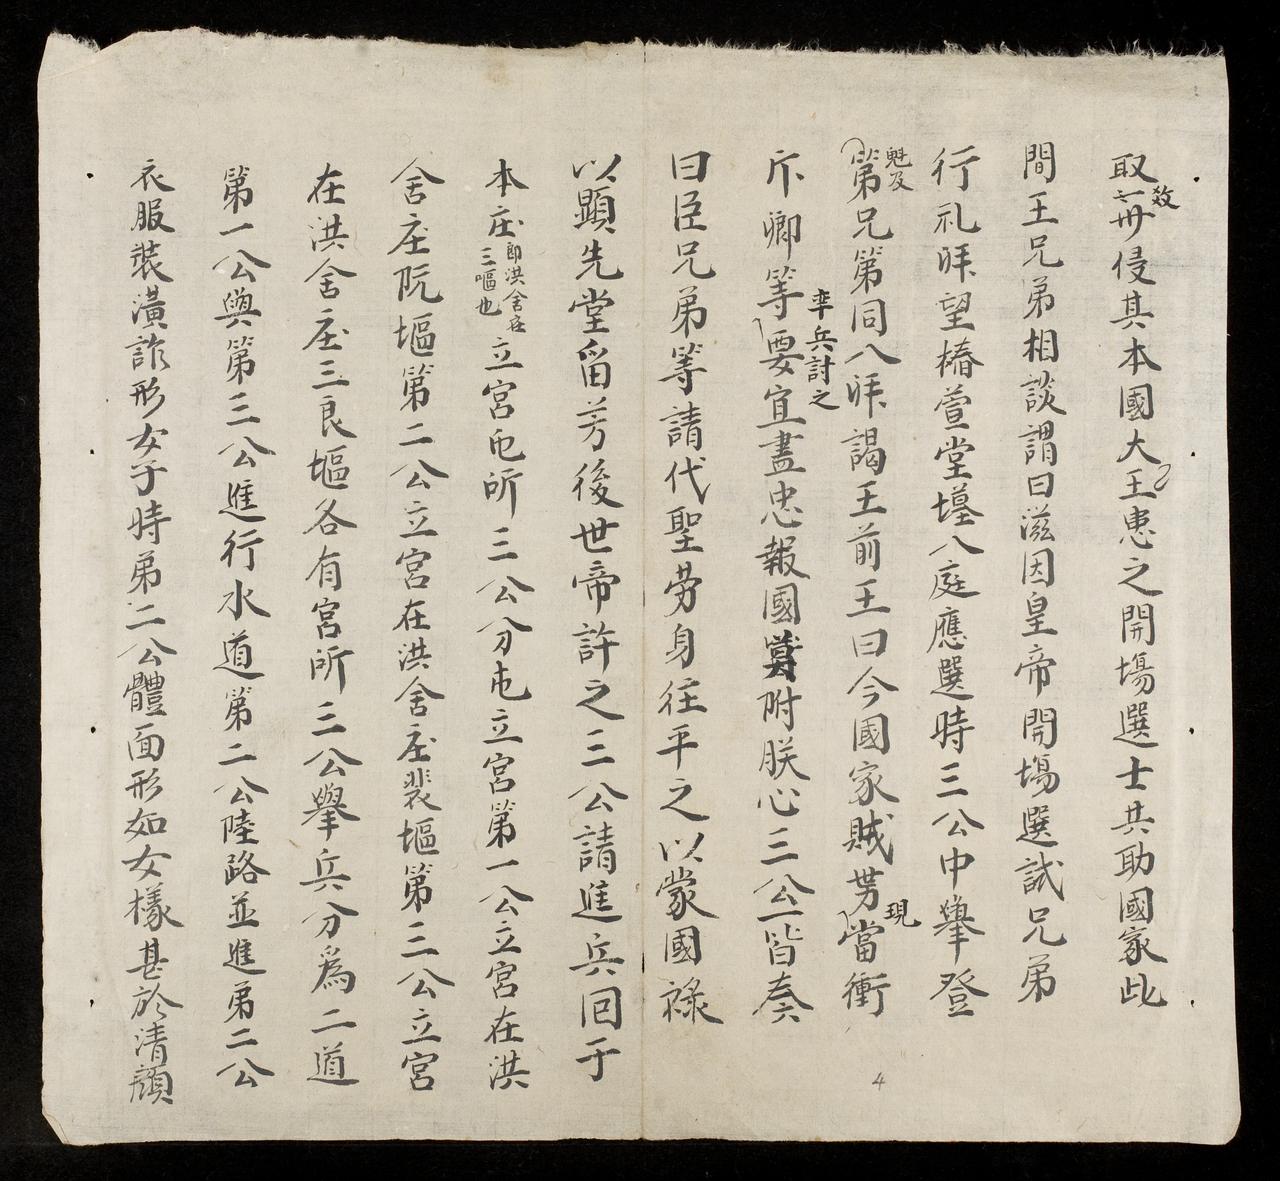 取卅侵其本國大王患之開場選士共助國家此
教
間王兄弟相談謂曰滋因皇帝開場選試兄弟
行礼拜望椿萱堂墐八庭應選時三公中舉登
魁及
第兄第同八拜謁王前王曰今國家賊势當衝
現
斥卿等要宜盡忠報國附朕心三公皆奏
率兵討之
曰臣兄弟等請代聖劳身往平之以蒙國祿
以顯先堂留芳後世帝許之三公請進兵回于
本庄
即洪舍庄
三嘔也
立宮屯所三公分屯立宮第一公立宮在洪
舍庄阮塸第二公立宮在洪舍庄裴塸第三公立宮
在洪舍庄三良塸各有宮所三公舉兵分爲二道
第一公與第三公進行水道第二公陸路並進弟二公
衣服裝潢詐形女子時弟二公體面形如女樣甚於清顔
4